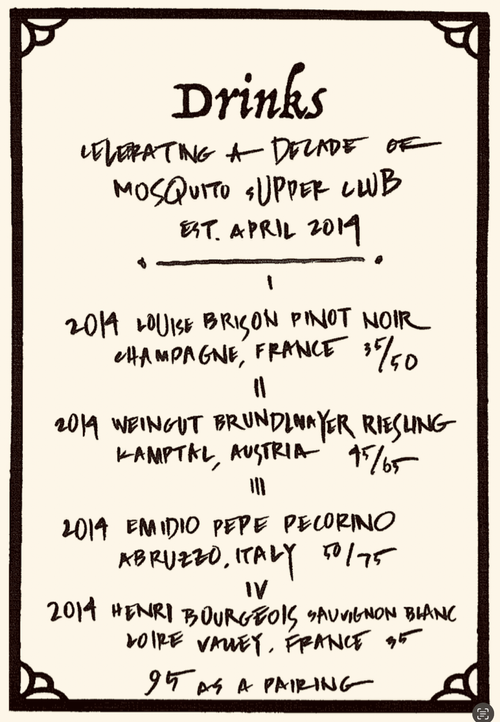 Drinks
CELEBRATING A DECADE OF
MOSQUITO SUPPER CLUB
EST. APRIL 2014
I
2014 LOUISE BRISON PINOT NOIR
CHAMPAGNE, FRANCE 35/50
II
2014 WEINGUT BRUNDLMAYER RIESLING
KAMPTAL, AUSTRIA 45/65
III
2014 EMIDIO PEPE PECORINO
ABRUZZO, ITALY 50/75
IV
2014 HENRI BOURGEOIS SAUVIGNON BLANC
LOIRE VALLEY, FRANCE 35
95 AS A PAIRING